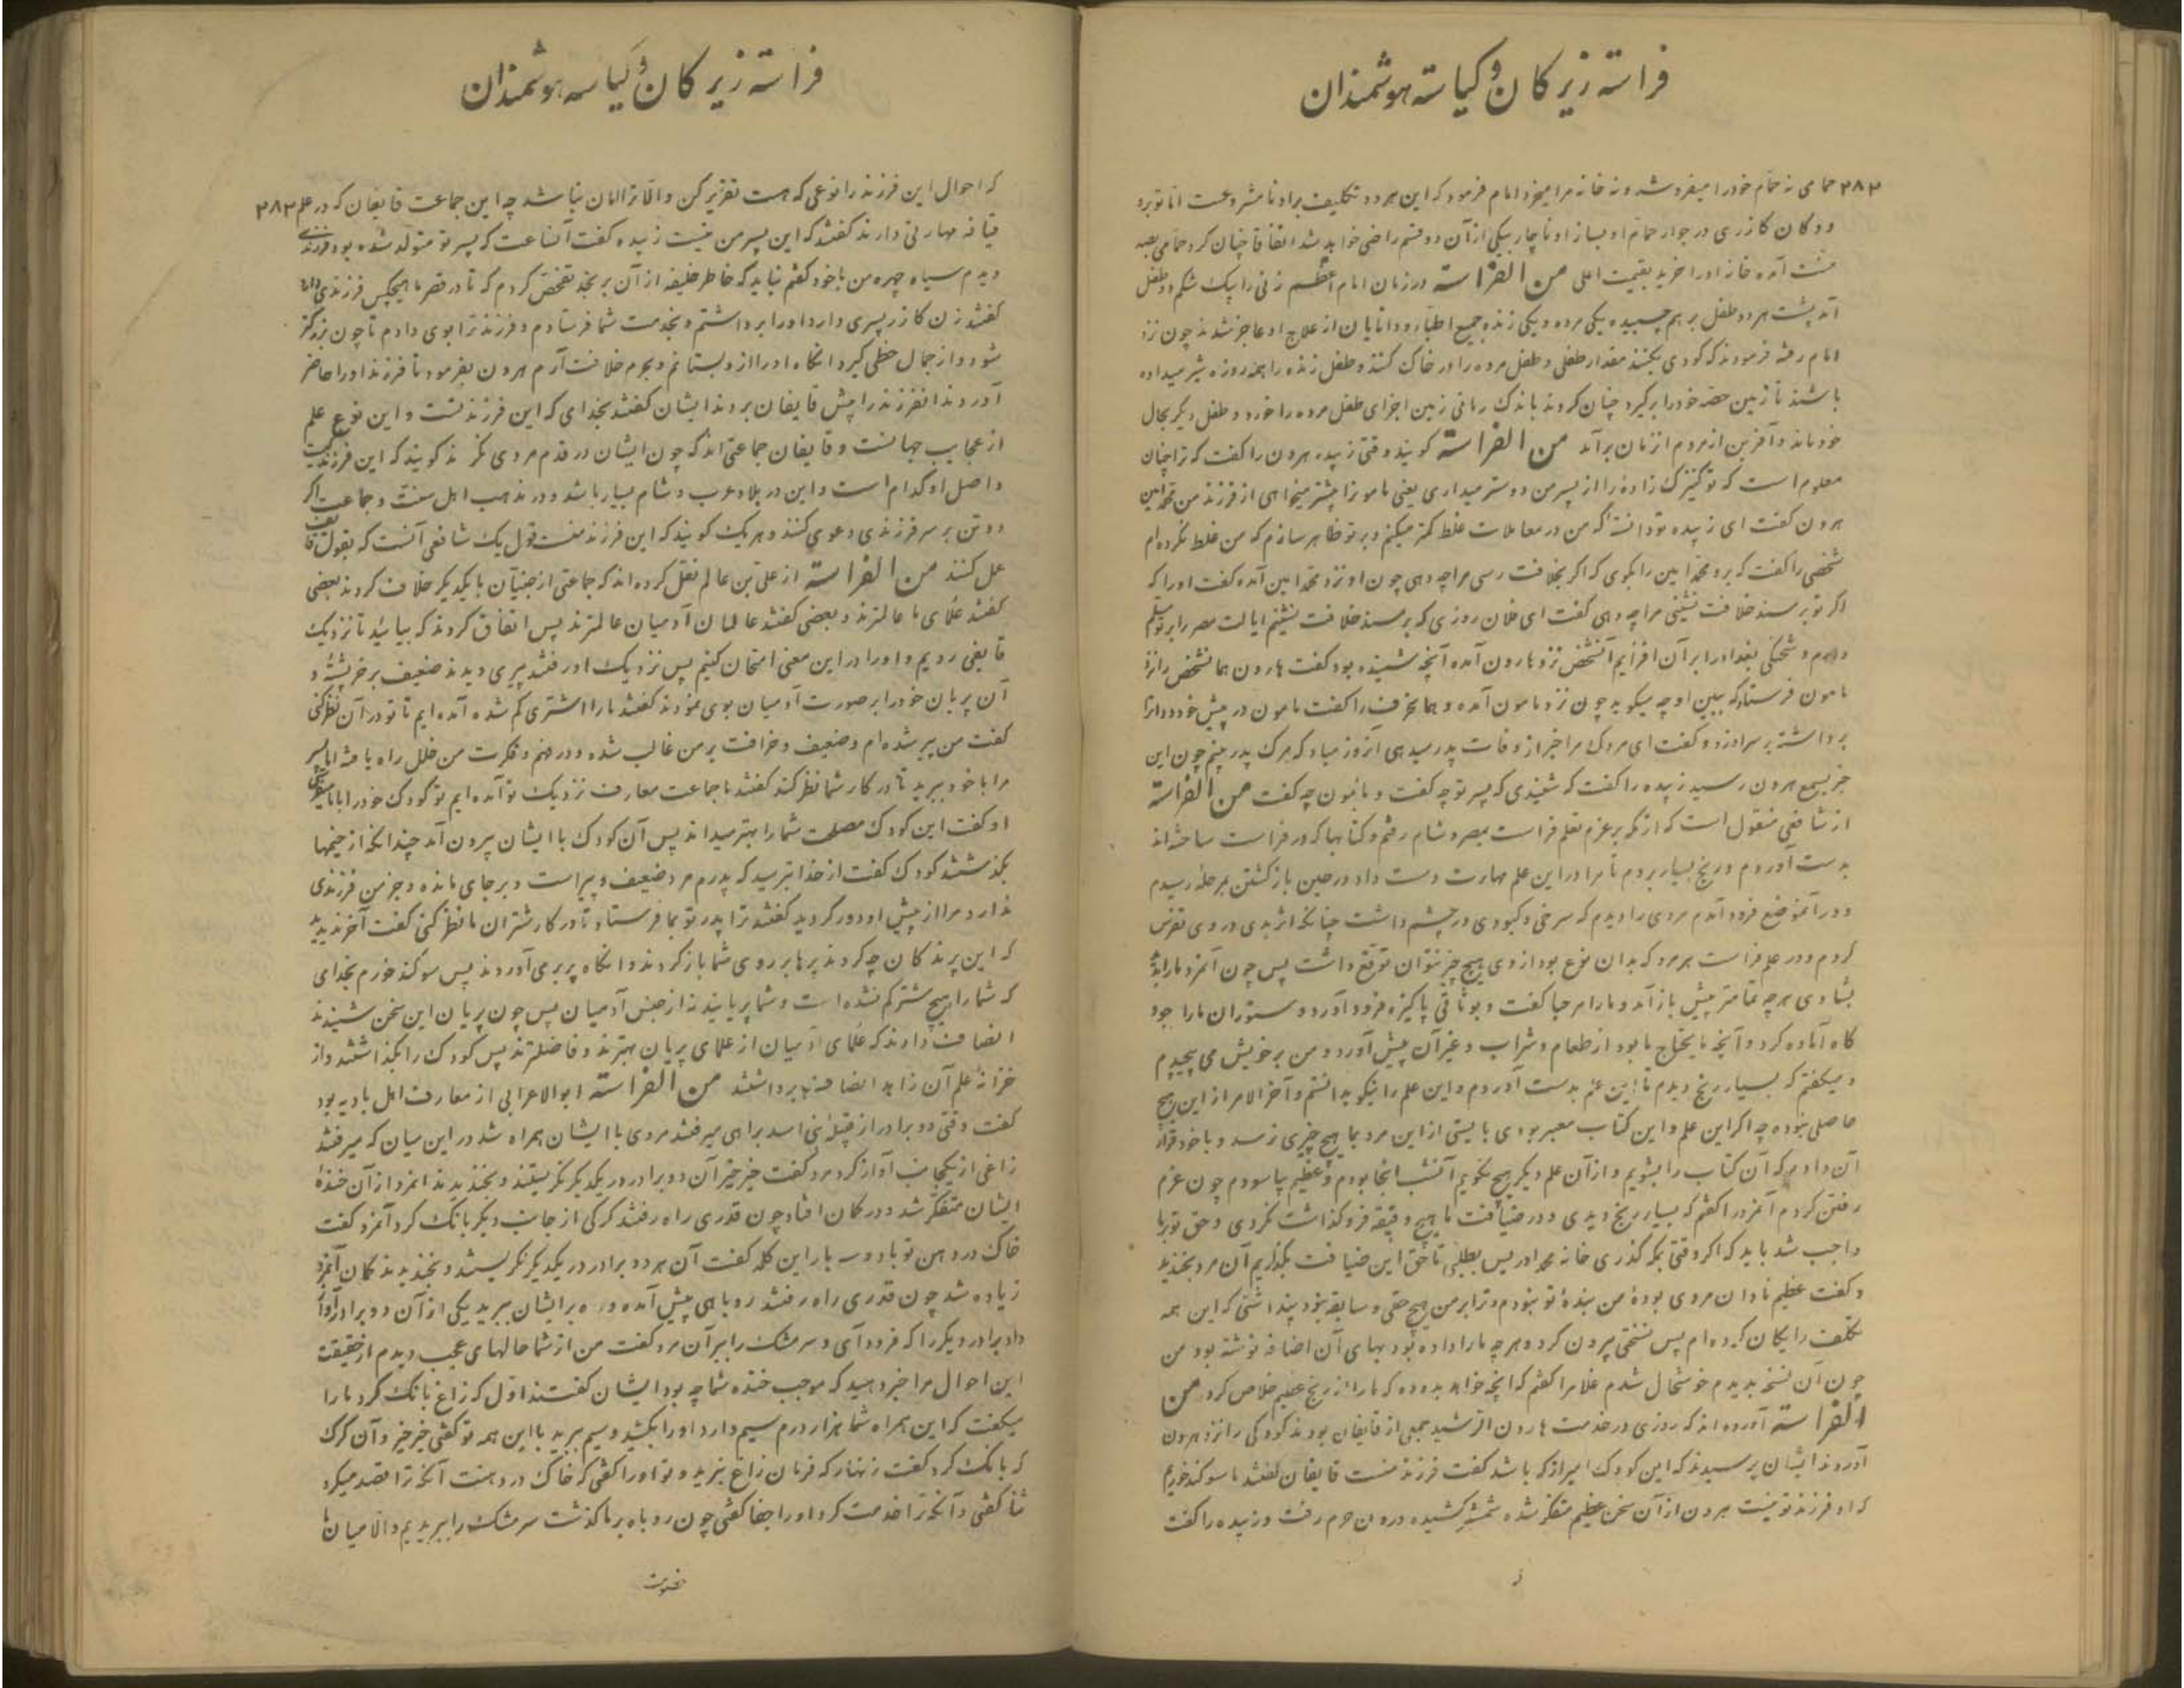 فراسته زیرکان و کیاسته هوشمندان
۲۸۲ حمامی نه حمام خود را میفروشد و نه خانه مرا میخرد امام فرمود که این هر دو تکلیف براو نامشروعست اما تو برو
و دکان کازری در جوار حمام او بساز او ناچار بیکی از آن دو قسم راضی خواهد شد اتفاقا چنان کرد حمامی بصد
منت آمده خانه او را خرید بقیمت اعلی من الفراسة در زمان امام اعظم زنی را بیک شکم دو طفل
آمد پشت هر دو طفل بر هم چسبیده یکی مرده و یکی زنده جمیع اطبا و دانایان از علاج او عاجز شدند چون نزد
امام رفته فرمودند که کودی بکنند مقدار طفلی و طفل مرده را در خاک کنند و طفل زنده را همه روزه شیر میداده
باشند تا زمین حصه خود را بگیرد چنان کردند باندک زمانی زمین اجزای طفل مرده را خورد و طفل دیگر بحال
خود ماند و آفرین از مردم آنزمان برآمد من الفراسة گویند وقتی زبیده هرون را گفت که ترا چنان
معلوم است که تو کنیزک زاده را از پسر من دوستر میداری یعنی مامونرا بیشتر میخواهی از فرزند من محمد امین
هرون گفت ای زبیده تو دانسته که من در معاملات غلط کمتر میکنم و بر تو ظاهر سازم که من غلط نکرده ام
شخصی را گفت که برو محمد امین را بگوی که اگر بخلافت رسی مرا چه دهی چون او نزد محمد امین آمده گفت او را که
اگر تو بر مسند خلافت نشینی مرا چه دهی گفت ای فلان روزی که بر مسند خلافت نشینم ایالت مصر را بر تو مسلم
دارم و شحنگی بغداد را بر آن افزایم آنشخص نزد هارون آمده آنچه شنیده بود گفت هارون همانشخص را نزد
مامون فرستاد که ببین او چه میگوید چون نزد مامون آمده و همانحرف را گفت مامون در پیش خود دوات
برداشته بر سر او زد و گفت ای مردک مرا خبر از وفات پدر میدهی آنروز مباد که مرگ پدر بینم چون این
خبر بسمع هرون رسید زبیده را گفت که شنیدی که پسر تو چه گفت و مامون چه گفت من الفراسة
از شافعی منقول است که از مکه بر عزم تعلم فراست بمصر و شام رفتم و کتابها که در فراست ساخته اند
بدست آوردم و رنج بسیار بردم تا مرا در این علم مهارت دست داد و در حین بازگشتن بمرحله رسیدم
و در آنموضع فرود آمدم مردی را دیدم که سرخی و کبودی در چشم داشت چنانکه اثر بدی در وی تفرس
کردم و در علم فراست هر مرد که بدان نوع بود از وی هیچ چیز نتوان توقع داشت پس چون آنمرد ما را بدید
بشادی هر چه تمامتر پیش باز آمد و ما را مرحبا گفت و بوثاقی پاکیزه فرود آورد و ستوران ما را جو و
کاه آماده کرد و آنچه مایحتاج ما بود از طعام و شراب و غیر آن پیش آورد و من بر خویش می پیچیدم
و میگفتم که بسیار رنج دیدم تا این علم بدست آوردم و این علم را نیکو بدانستم و آخر الامر از این هیچ
حاصلی نبوده چه اگر این علم و این کتاب معبر بودی بایستی از این مرد بما هیچ چیزی نرسد و با خود قرار
آن دادم که آن کتاب را بشویم و از آن علم دیگر هیچ نگویم آنشب آنجا بودم و عظیم بیاسودم چون عزم
رفتن کردم آنمرد را گفتم که بسیار رنج دیدی و در ضیافت ما هیچ دقیقه فروگذاشت نکردی و حق تو بر ما
واجب شد باید که اگر وقتی بمکه گذری خانه محمد ادریس بطلبی تا حق این ضیافت بگذاریم آن مرد بخندید
و گفت عظیم نادان مردی بودهٔ من بندهٔ تو نبودم و ترا بر من هیچ حقی و سابقه نبود پنداشتی که این همه
تکلف رایگان کرده ام پس نسختی بیرون کرد و هر چه ما را داده بود بهای آن اضافه نوشته بود من
چون آن نسخه بدیدم خوشحال شدم غلامرا گفتم که آنچه خواهد بده که ما را از رنج عظیم خلاص کرد من
الفراسة آورده اند که روزی در خدمت هارون الرشید جمعی از قایفان بودند کودکی را نزد هرون
آوردند ایشان پرسیدند که این کودک امیر از که باشد گفت فرزند منست قایفان گفتند ما سوگند خوریم
که او فرزند تو نیست هرون از آن سخن عظیم متفکر شده شمشیر کشیده درون حرم رفت و زبیده را گفت
فراسته زیرکان و کیاسه هوشمندان
که احوال این فرزند را نوعی که هست تقریر کن و الا ترا امان نباشد چه این جماعت قایفان که در علم ۲۸۳
قیافه مهارتی دارند گفتند که این پسر من نیست زبیده گفت آنساعت که پسر تو متولد شده بود فرزندی
دیدم سیاه چهره من با خود گفتم نباید که خاطر خلیفه از آن برنجد تفحص کردم که تا در قصر ما هیچکس فرزندی دارد
گفتند زن کازر پسری دارد او را برداشتم و بخدمت شما فرستادم و فرزند ترا بوی دادم تا چون بزرگتر
شود و از جمال حظی گیرد آنگاه او را از و بستانم و بحرم خلافت آرم هرون بفرمود تا فرزند او را حاضر
آوردند آنفرزند را پیش قایفان بردند ایشان گفتند بخدای که این فرزند تست و این نوع علم
از عجایب جهانست و قایفان جماعتی اند که چون ایشان در قدم مردی نگرند گویند که این فرزند کیست
و اصل او کدام است و این در بلاد عرب و شام بسیار باشد و در مذهب اهل سنت و جماعت اگر
دو تن بر سر فرزندی دعوی کنند و هر یک گویند که این فرزند منست قول یک شافعی آنست که بقول قایف
عمل کنند من الفراسة از علی بن عالم نقل کرده اند که جماعتی از جنیان با یکدیگر خلاف کردند بعضی
گفتند علمای ما عالمترند و بعضی گفتند عالمان آدمیان عالمترند پس اتفاق کردند که بیائید تا نزدیک
قایفی رویم و او را در این معنی امتحان کنیم پس نزدیک او رفتند پیری دیدند ضعیف بر خر پشته و
آن پریان خود را بر صورت آدمیان بوی نمودند گفتند ما را اشتری گم شده آمده ایم تا تو در آن نظر کنی
گفت من پیر شده ام و ضعیف و خرافت بر من غالب شده و در فهم و فکرت من خلل راه یافته اما پسر
مرا با خود ببرید تا در کار شما نظر کند گفتند ما جماعت معارف نزدیک تو آمده ایم تو کودک خود را با ما میفرستی
او گفت این کودک مصلحت شما را بهتر میداند پس آن کودک با ایشان بیرون آمد چندانکه از خیمها
بگذشتند کودک گفت از خدا بترسید که پدرم مرد ضعیف و پیر است و بر جای مانده و جز من فرزندی
ندارد مرا از پیش او دور کردید گفتند ترا پدر تو بما فرستاد تا در کار شتران ما نظر کنی گفت آخر ندیدید
که این پرندکان چه کردند پرها بر روی شما باز کردند و آنگاه پر بر می آوردند پس سوگند خورم بخدای
که شما را هیچ شتر گم نشده است و شما پریانید نه از جنس آدمیان پس چون پریان این سخن شنیدند
انصاف دادند که علمای آدمیان از علمای پریان بهترند و فاضلترند پس کودک را بگذاشتند و از
خزانهٔ علم آن زاید انصافها برداشتند من الفراسة ابو الاعرابی از معارف اهل بادیه بود
گفت وقتی دو برادر از قبیلهٔ بنی اسد براهی میرفتند مردی با ایشان همراه شد در این میان که میرفتند
زاغی از یکجانب آواز کرد مرد گفت خیر خیر آن دو برادر در یکدیگر نگریستند و بخندیدند آنمرد از آن خندهٔ
ایشان متفکر شد و در گمان افتاد چون قدری راه رفتند گرگی از جانب دیگر بانگ کرد آنمرد گفت
خاک در دهن تو باد و سه بار این کلمه گفت آن هر دو برادر در یکدیگر نگریستند و بخندیدند گمان آنمرد
زیاده شد چون قدری راه رفتند روباهی پیش آمده و ره بر ایشان ببرید یکی از آن دو برادر آواز
داد برادر دیگر را که فرود آی و سر مشک را ببر آن مرد گفت من از شما حالهای عجب دیدم از حقیقت
این احوال مرا خبر دهید که موجب خنده شما چه بود ایشان گفتند اول که زاغ بانگ کرد ما را
میگفت که این همراه شما هزار درم سیم دارد او را بکشید و سیم ببرید با این همه تو گفتی خیر خیر و آن گرگ
که بانگ کرد گفت زنهار که فرمان زاغ نبرید و تو او را گفتی که خاک در دهنت آنکه ترا قصد میکرد
ثنا گفتی و آنکه ترا خدمت کرد او را جفا گفتی چون روباه بر ما گذشت سر مشک را ببریدیم و الا میان ما
خصومت